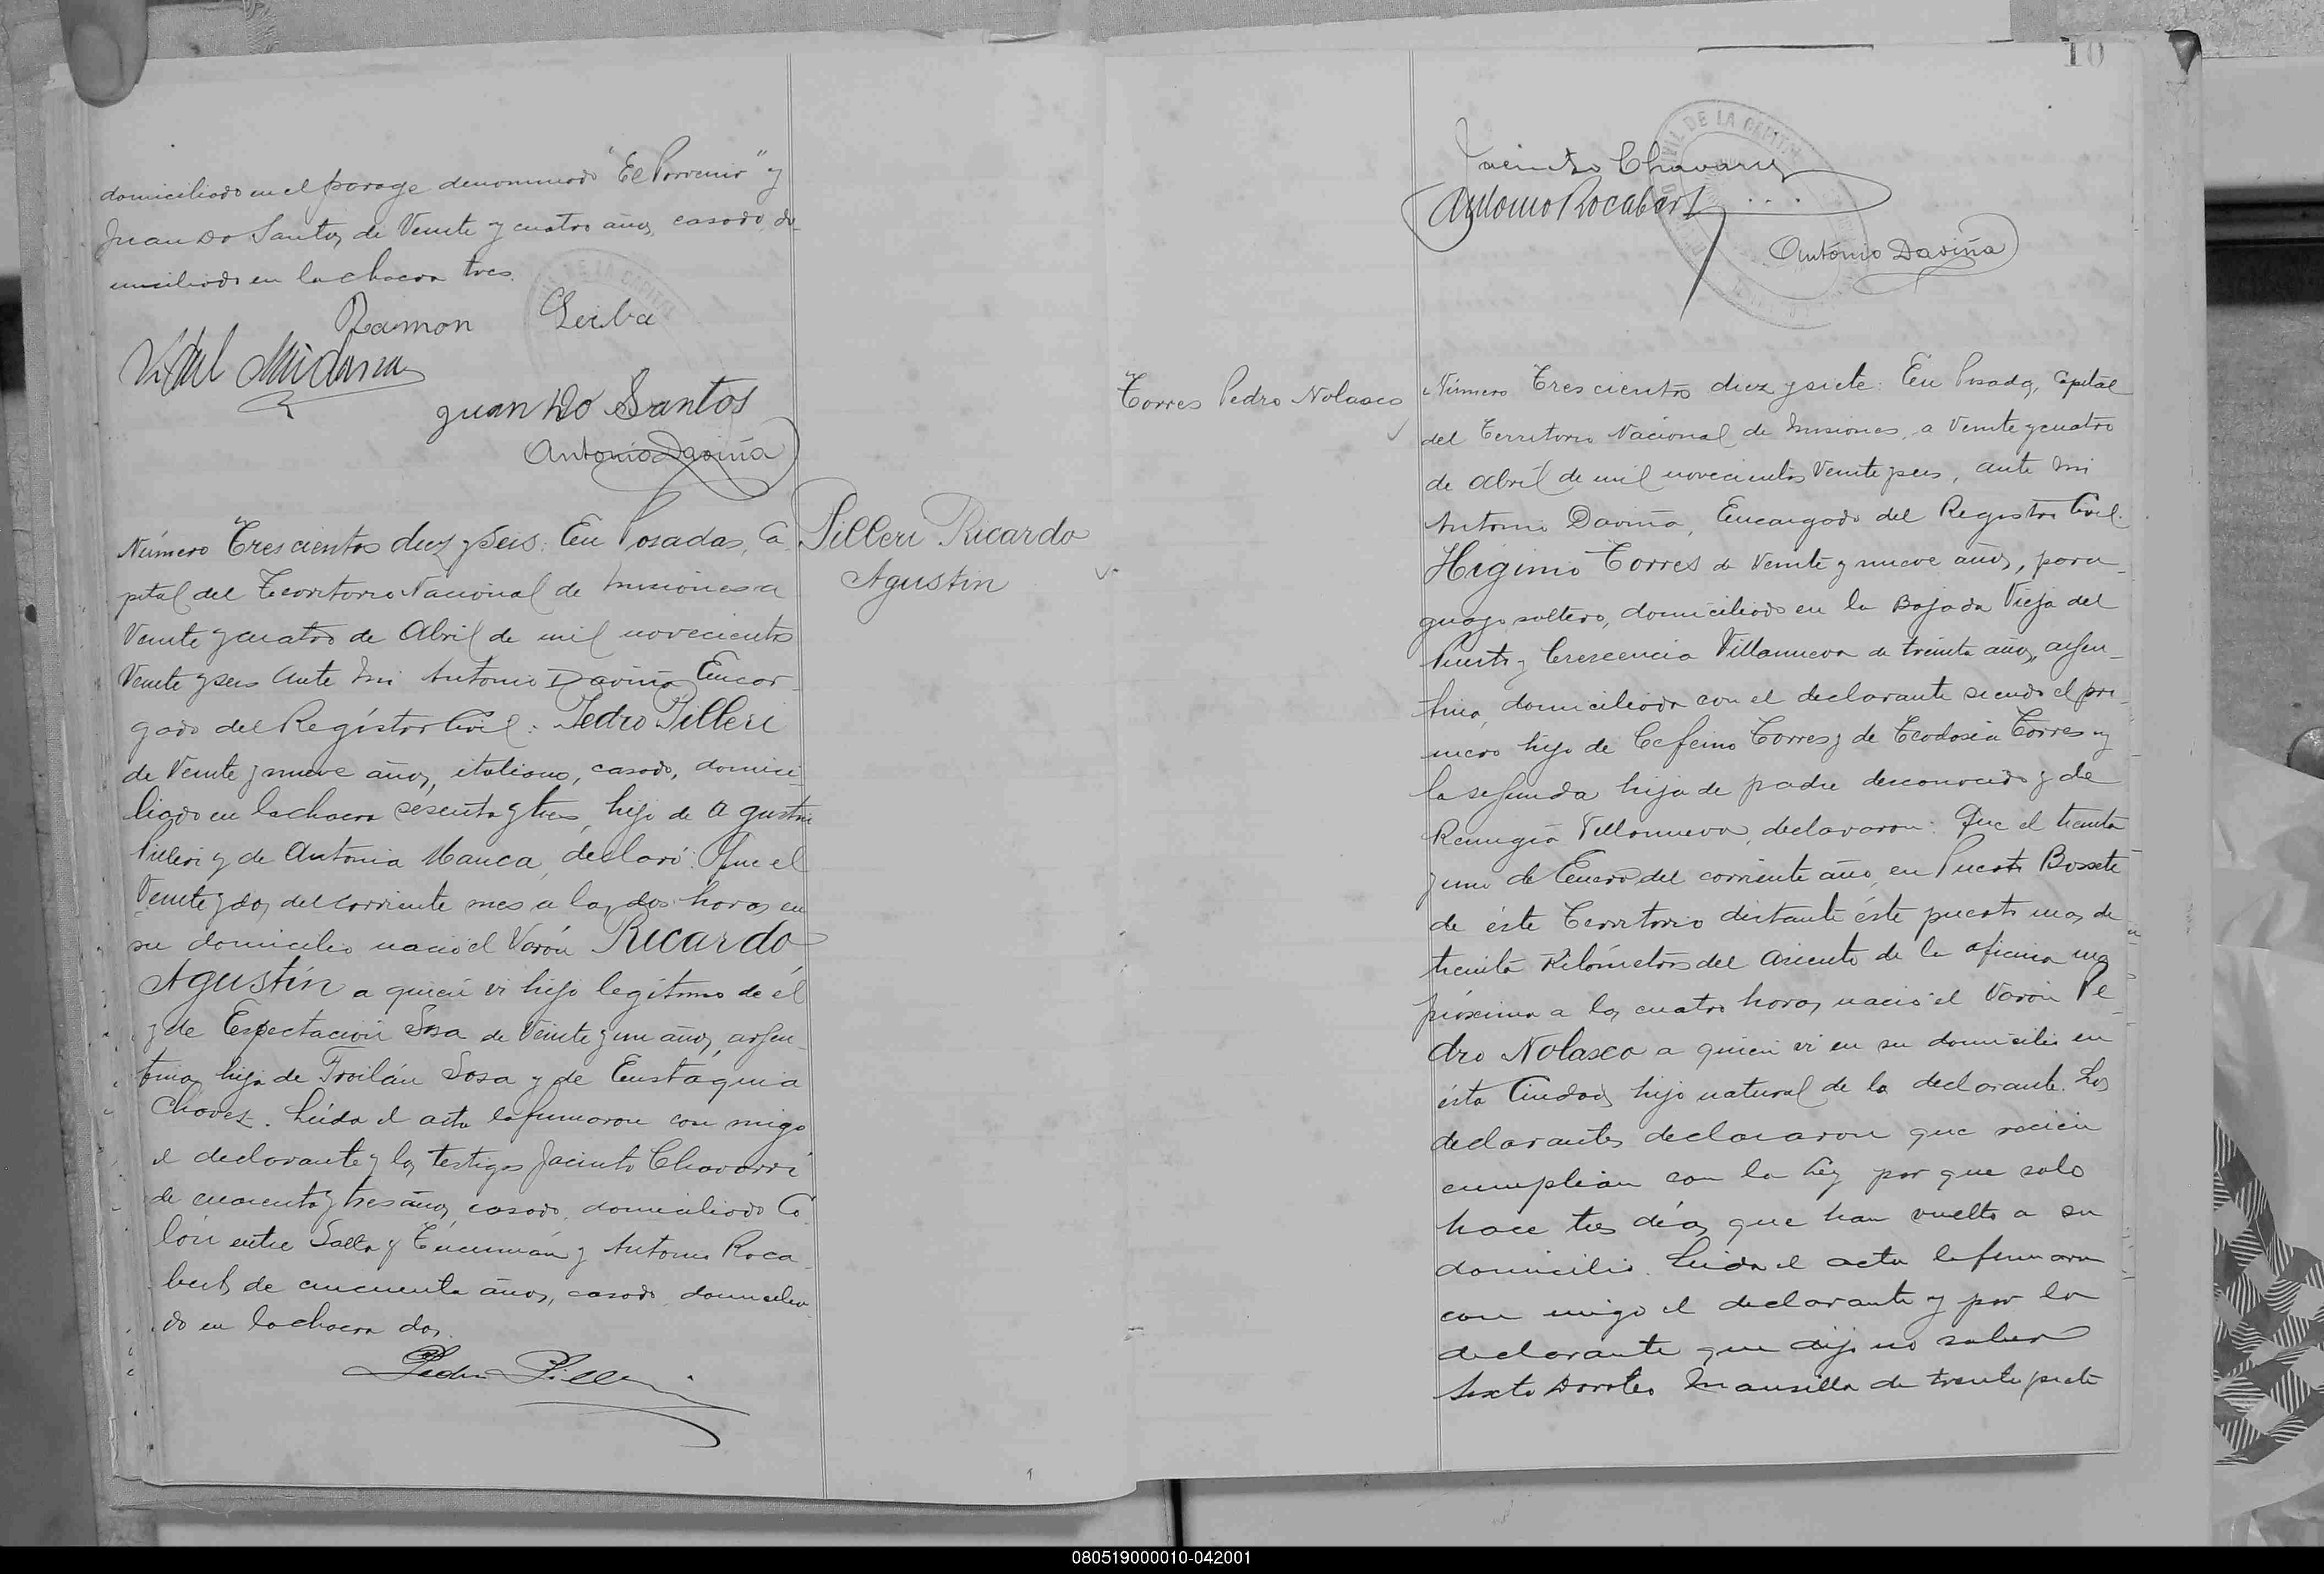 domiciliado en el parage denominado "El Porvenir" y
Juan Do Santos, de Veinte y cuatro años, casado, do-
miciliado en la chacra tres.
Ramon Leiba
Vidal
Juan Do Santos
Antonio Daviña
Pilleri Ricardo
Agustin
Número Trescientos diez y seis: En Posadas, Ca-
pital del Territorio Nacional de Misiones a
Veinte y cuatro de Abril de mil novecientos
Veinte y seis ante mi Antonio Daviña Encar-
gado del Registro Civil: Pedro Pilleri
de Veinte y nueve años, italiano, casado, domici-
liado en la chacra sesenta y tres, hijo de Agustin
Pilleri y de Antonia Manca, declaró: Que el
Veinte y dos del corriente mes a las dos horas en
su domicilio nació el Varón Ricardo
Agustín a quien vi hijo legítimo de él
y de Espectación Sosa de Veinte y un años, argen-
tina, hija de Froilán Sosa y de Eustaquia
Chavez. Leída el acta la firmaron con migo
el declarante y los testigos Jacinto Chavarri
de cuarenta y tres años, casado, domiciliado Co-
lón entre Salta y Tucumán y Antonio Roca-
bert, de cincuenta años, casado, domicilia-
do en la chacra dos.
Pedro Pilleri
10
DE LA CAPITAL
Jacinto Chavarri
Antonio Rocabert
Antonio Daviña
Torres Pedro Nolasco
Número Trescientos diez y siete: En Posadas, Capital
del Territorio Nacional de Misiones, a Veinte y cuatro
de Abril de mil novecientos Veinte y seis, ante mi
Antonio Daviña, Encargado del Registro Civil:
Higinio Torres de Veinte y nueve años, para-
guayo soltero, domiciliado en la Bajada Vieja del
Puerto y Crescencia Villanueva de treinta años, argen-
tina, domiciliada con el declarante siendo el pri-
mero hijo de Ceferino Torres y de Teodosia Torres y
la segunda hija de padre desconocido y de
Remigia Villanueva, declararon: Que el treinta
y uno de Enero del corriente año, en Puerto Bossete
de éste Territorio distante éste puerto mas de
treinta Kilómetros del asiento de la oficina mas
próxima a las cuatro horas nació el Varón Pe-
dro Nolasco a quien vi en su domicilio en
ésta Ciudad, hijo natural de la declarante. Los
declarantes declararon que recien
cumplian con la Ley por que solo
hace tres días que han vuelto a su
domicilio. Leida el acta la firmaron
con migo el declarante y por la
declarante que dijo no saber
Sixto Doroteo Mansilla de treinta y siete
080519000010-042001